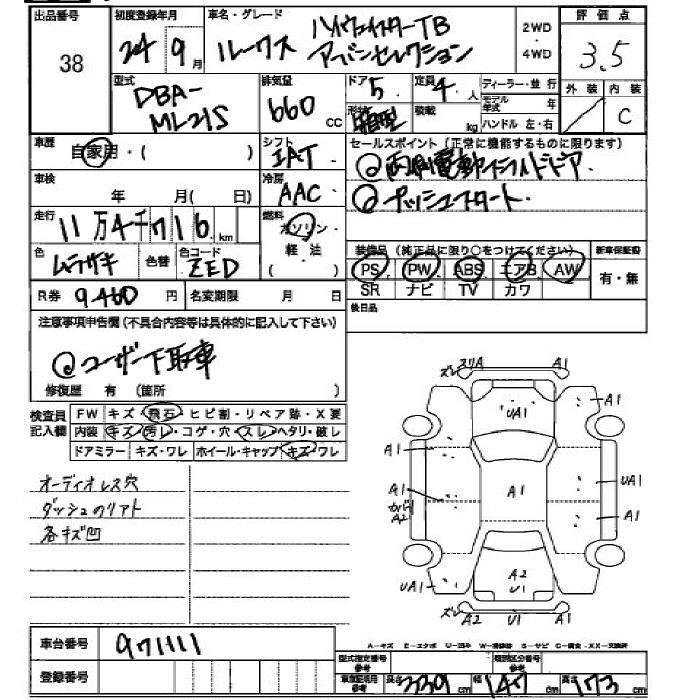 出品番号 初度登録年月 車名・グレード 2WD 評価点
38 24 9月 ルークス ハイウェイスターTB ・ 3.5
アーバンセレクション 4WD
型式 排気量 ドア 5 定員 4 人 ディーラー・並行 外装 内装
DBA- 660 形状 箱型 積載 kg モデル年式 年 C
ML21S CC ハンドル 左・右
車歴 自家用・( ) シフト IAT セールスポイント(正常に機能するものに限ります)
車検 年 月( 日) 冷房 AAC 両側電動スライドドア
走行 11万4千716km 燃料 ガソリン プッシュスタート
軽油
( )
色 ムラサキ 色替 色コード ZED 装備品(純正品に限り○をつけてください) 新車保証書
PS PW ABS エアB AW 有・無
R券 9,460円 名変期限 月 日 SR ナビ TV カワ
注意事項申告欄(不具合内容等は具体的に記入して下さい) 後日品
ユーザー下取車
修復歴 有 (箇所 )
検査員記入欄 FW キズ・飛石・ヒビ割・リペア跡・X要
内装 キズ・汚レ・コゲ・穴・スレ・ヘタリ・破レ
ドアミラー キズ・ワレ ホイール・キャップ キズ・ワレ
オーディオレス穴
ダッシュのリアト
各キズ凹
ズレ スリA A1
UA1
A1 A1
A1 A1 UA1
A1
カバリ
A2 A1
UA1 A2 U1 A1
ズレ A2 U1 A1
車台番号 971111
A-キズ E-エクボ U-凹み W-補修跡 S-サビ C-腐食 XX-交換済
登録番号 型式指定番号 参考 類別区分番号 参考
車庫証明用 参考 長さ 339cm 幅 147cm 高さ 173cm